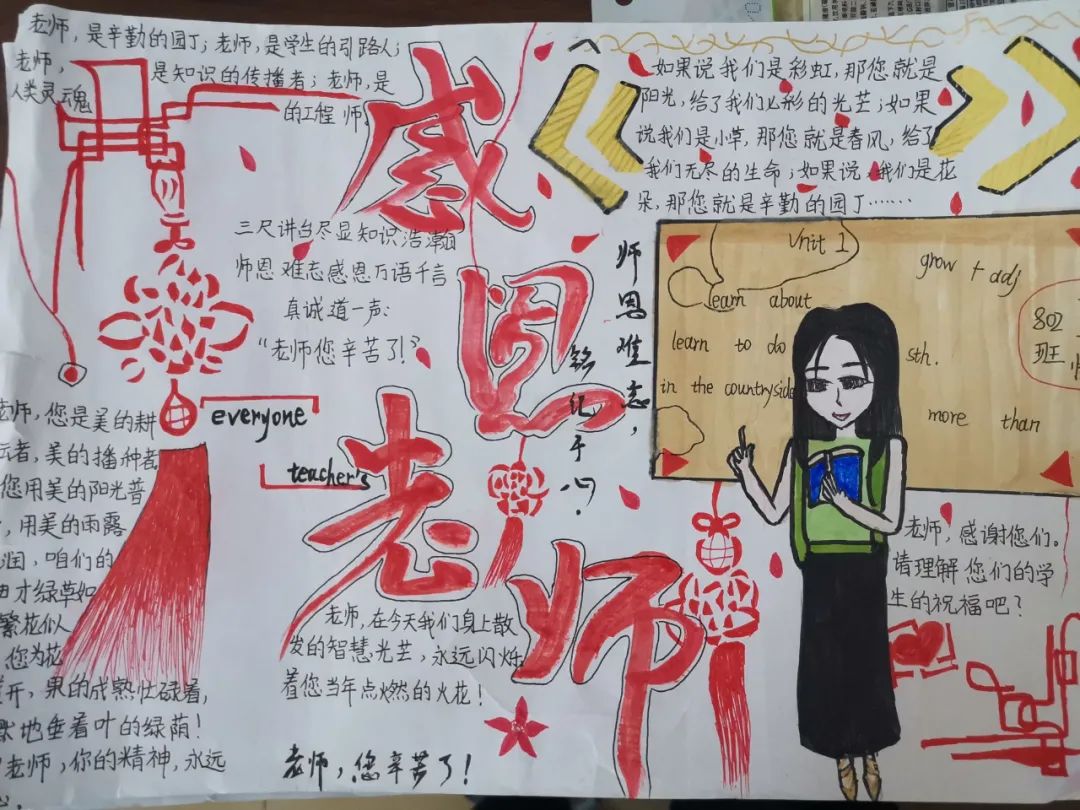 老师，是辛勤的园丁；老师，是学生的引路人；
老师，是知识的传播者；老师，是
人类灵魂的工程师
感
恩
老
师
如果说我们是彩虹，那您就是
阳光，给了我们七彩的光芒；如果
说我们是小草，那您就是春风，给了
我们无尽的生命；如果说，我们是花
朵，那您就是辛勤的园丁……
三尺讲台尽显知识浩瀚
师恩难忘感恩万语千言
真诚道一声：
“老师您辛苦了！”
师恩难忘，
铭记于心。
Vnit 1
grow + adj
learn about
learn to do
sth.
in the countryside
more than
802
班
everyone
teacher's
老师，您是美的耕
云者，美的播种者
您用美的阳光普
，用美的雨露
润，咱们的
田才绿草如
繁花似
，您为花
开，果的成熟忙碌着，
地垂着叶的绿荫！
老师，你的精神，永远
心
老师，在今天我们身上散
发的智慧光芒，永远闪烁
着您当年点燃的火花！
老师，您辛苦了！
老师，感谢您们。
请理解您们的学
生的祝福吧？